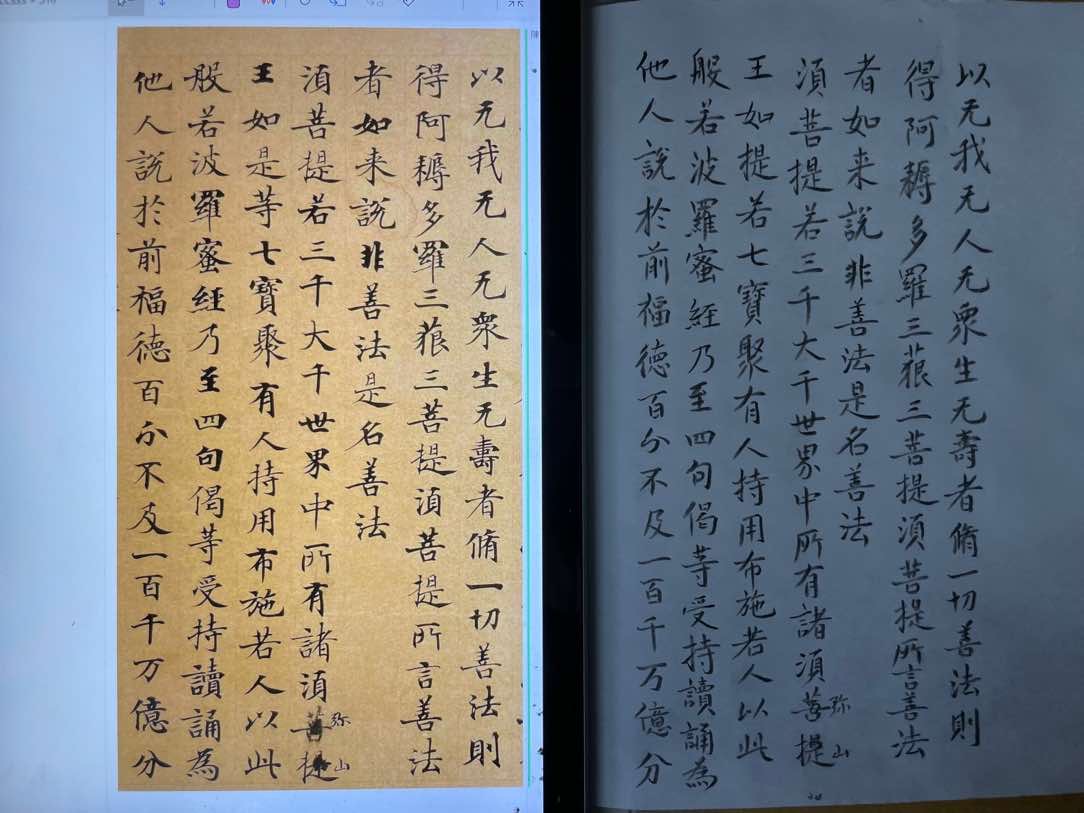 以无我无人无衆生无壽者脩一切善法則
得阿耨多羅三藐三菩提湏菩提所言善法
者如来說非善法是名善法
湏菩提若三千大千世界中所有諸湏菩提
弥山
王如是等七寶聚有人持用布施若人以此
般若波羅蜜經乃至四句偈等受持讀誦為
他人說於前福德百分不及一百千万億分
以无我无人无衆生无壽者脩一切善法則
得阿耨多羅三藐三菩提湏菩提所言善法
者如来說非善法是名善法
湏菩提若三千大千世界中所有諸湏菩提
弥山
王如提若七寶聚有人持用布施若人以此
般若波羅蜜經乃至四句偈等受持讀誦為
他人說於前福德百分不及一百千万億分